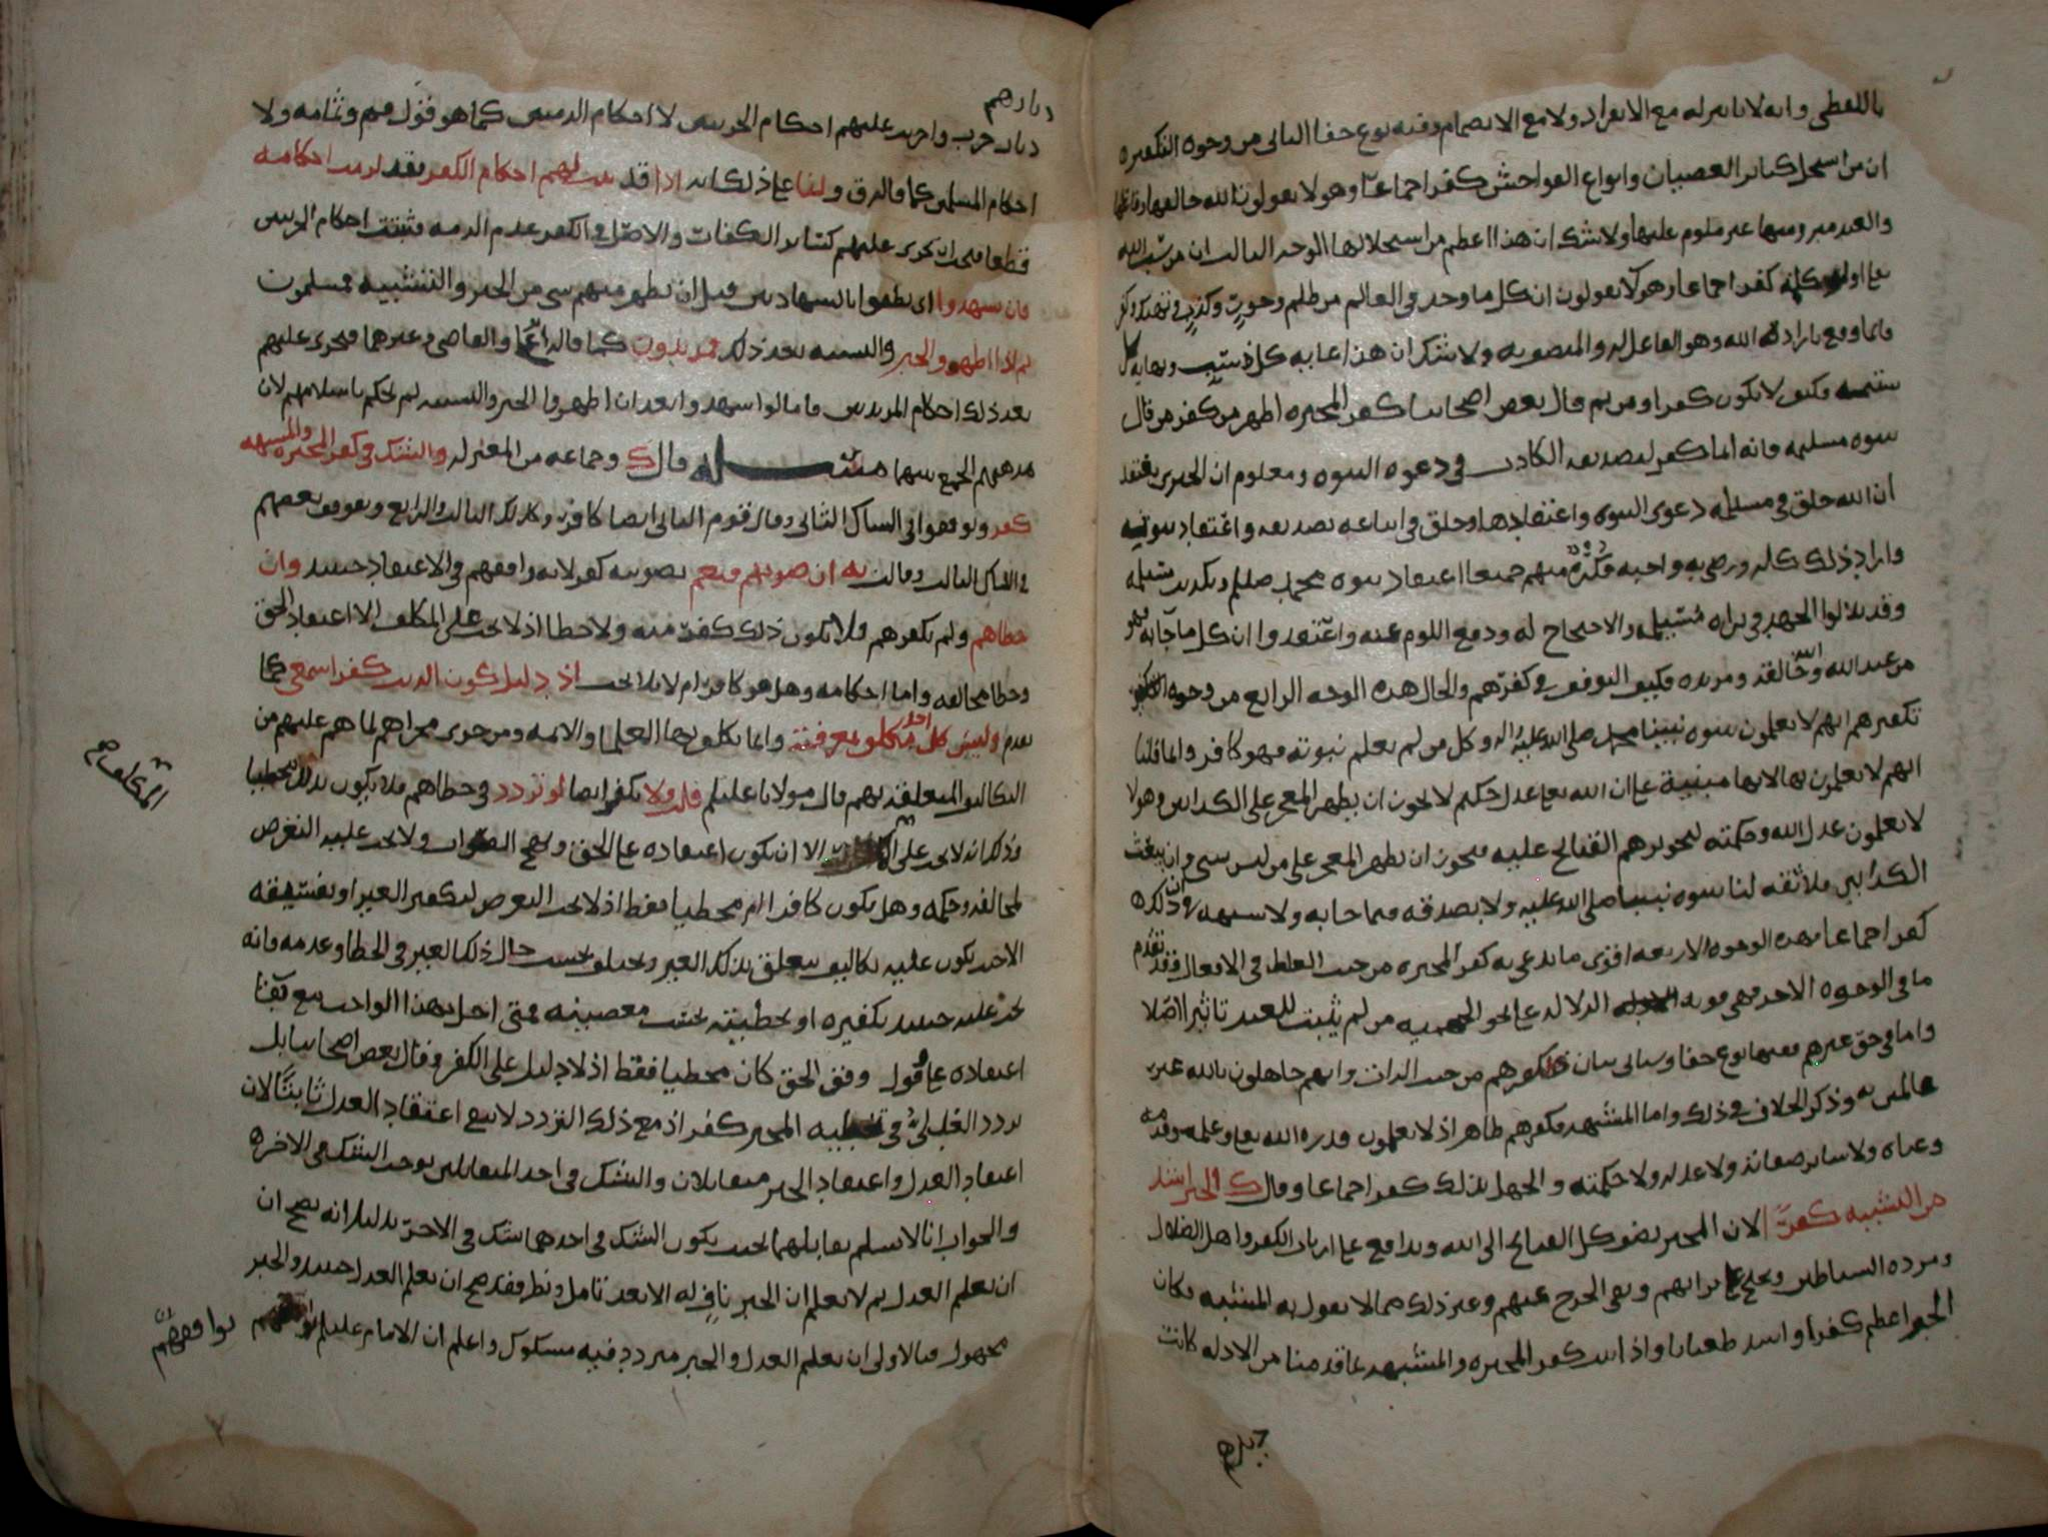 باللفظي وانه لا تاثير له مع الانفراد ولا مع الانضمام وفيه نوع خفا الثاني من وجوه التكفيره
ان من استحل كبائر العصيان وانواع الفواحش كفر اجماعا وهولا يقولون الله خالقها
والعبد مبر ومنها غير ملوم عليها ولا شك ان هذا اعظم من استحلالها الوجه الثالث ان من سب الله
تعالى كفر اجماعا وهولا يقولون ان كل ما وجد في العالم من ظلم وجور وكذب
فانما وقع بارادة الله وهو الفاعل له والمتصور به ولا شك ان هذا غايه كل سب ونهايه كل
شتيمه فكيف لا يكون كفرا ومن ثم قال بعض اصحابنا كفر المجبره اظهر من كفر من قال
بنبوه مسيلمه فانه انما كفر لتصديقه الكاذب في دعوه النبوه ومعلوم ان الجبري يعتقد
ان الله خلق في مسيلمه دعوى النبوه واعتقادها وخلق في اتباعه تصديقه واعتقاد نبوته
واراد ذلك كله ورضي به واحبه منهم جميعا اعتقاد نبوه محمد صللم وتكذيب مسيلمه
وقد بذلوا الجهد في براه مسيلمه والاحتجاج له ودفع اللوم عنه واعتقدوا ان كل ما جا به فهو
من عند الله والله خالقه ومريده فكيف التوقف في كفرهم والحال هذه الوجه الرابع من وجوه
تكفيرهم انهم لا يعلمون نبوه نبينا محمد صلى الله عليه واله وكل من لم يعلم نبوته فهو كافر وانما قلنا
انهم لا يعلمون بها لانها مبنية على ان الله تعالى عدل حكيم لا يجوز ان يظهر المعجز على الكذابين وهولا
لا يعلمون عدل الله وحكمته لتجويزهم القبائح عليه فيجوز ان يظهر المعجز على من ليس بنبي وان يبعث
الكذابين فلا ثقه لنا بنبوه نبينا صلى الله عليه ولا بصدقه فيما جا به ولا شبهه ان ذلك
كفر اجماعا فهذه الوجوه الاربعه اقوى ما يدعى به كفر المجبره من حيث الغلط في الافعال فقد تقدم
ما في الوجوه الاخر فهي قويه الدلاله على نحو الجهميه من لم يثبت للعبد تاثيرا اصلا
واما في حق غيرهم ففيها نوع خفا وسياتي بيان كفرهم من حيث الذات وانهم جاهلون بالله غير
عالمين به وذكر الخلاف في ذلك واما المشبهه فكفرهم ظاهر اذ لا يعلمون قدره الله تعالى وعلمه وقدمه
وغناه ولا سائر صفاته ولا عدله ولا حكمته والجهل بذلك كفر اجماعا وقال ك والجبر اشد
من التشبيه كفرا لان المجبر يضيف كل القبائح الى الله ويدافع على ارباب الكفر واهل الضلال
ومرده الشياطين ويحتج على براتهم ونفي الحرج عنهم وغير ذلك مما لا يقول به المشبه فكان
الجبر اعظم كفرا واشد طغيانا واذا ثبت كفر المجبره والمشبهه بما قدمنا من الادله كانت
ديارهم
ديارهم
ديار حرب واجريت عليهم احكام الحربيين لا احكام الذميين كما هو قول م وثمامه ولا
احكام المسلمين كما قال ق ولنا على ذلك انه اذا قد ثبت لهم احكام الكفر فقد لزمت احكامه
قطعا فيجب ان تجرى عليهم كسائر الكفار والاصل في الكفر عدم الذمه فثبتت احكام الحربيين
فان شهدوا اي نطقوا بالشهادتين قبل ان يظهر منهم شي من الجبر والتشبيه فمسلمون
ثم اذا اظهروا الجبر والتشبيه بعد ذلك فمرتدون كما قاله والقاضي وغيرهما فيجرى عليهم
بعد ذلك احكام المرتدين فاما لو اشهدوا بعد ان اظهروا الجبر والتشبيه لم نحكم باسلامهم لان
مذهبهم الجمع بينهما مسئله قال ك وجماعه من المعتزله والشاك في كفر المجبره والمشبهه
كفر ولو فقهوا في الشاك الثاني وقال قوم الثاني ايضا كافر وكذلك الثالث والرابع وتوقف بعضهم
في الشاك الثالث وقالت يه ان صوبهم فنعم تصويبه كفر لانه وافقهم في الاعتقاد حينئذ وان
خطاهم ولم يكفرهم فلا يكون ذلك كفرا منه ولا خطا اذ لا يجب على المكلف الا اعتقاد الحق
وخطا مخالفه واما احكامه وهل هو كافر ام لا فلا يجب اذ دليل كون الذنب كفرا سمعي كما
تقدم وليس كل احد مكلف بمعرفته وانما يكلف بها العلما والايمه ومن جرى مجراهم لما هم عليهم من
التكاليف المتعلقه بهم قال مولانا عليلم قلت ولا يكفر ايضا لو تردد في خطاهم فلا يكون بذلك مخطيا
وذلك انه لا يجب على المكلف الا ان يكون اعتقاده على الحق ونهج الصواب ولا يجب عليه التعرض
المكلف صح
لمخالفه وحكمه وهل يكون كافرا ام مخطيا فقط اذ لا يجب التعرض لتكفير الغير او تفسيقه
الا حيث يكون عليه تكاليف تتعلق بذلك الغير وتختلف بحسب حال ذلك الغير في الخطا وعدمه فانه
يجب عليه حينئذ تكفيره او تخطيته بحسب معصيته فمتى اخل بهذا الواجب مع بقا
اعتقاده على وفق الحق كان مخطيا فقط اذ لا دليل على الكفر وقال بعض اصحابنا بل
تردد العدلي في تخطيه المجبر كفر اذ مع ذلك التردد لا يبقى اعتقاد العدل ثابتا لان
اعتقاد العدل واعتقاد الجبر متقابلان والشك في احد المتقابلين يوجب الشك في الاخره
والجواب انا لا نسلم تقابلهما بحيث يكون الشك في احدهما شك في الاخر بدليل انه يصح ان
ان يعلم العدل ثم لا يعلم ان الجبر ناف له الا بعد تامل ونظر فقد صح ان يعلم العدل حينئذ والجبر
مجهول فبالاولى ان يعلم العدل والجبر متردد فيه مشكوك واعلم ان الامام عليلم
توافقهم